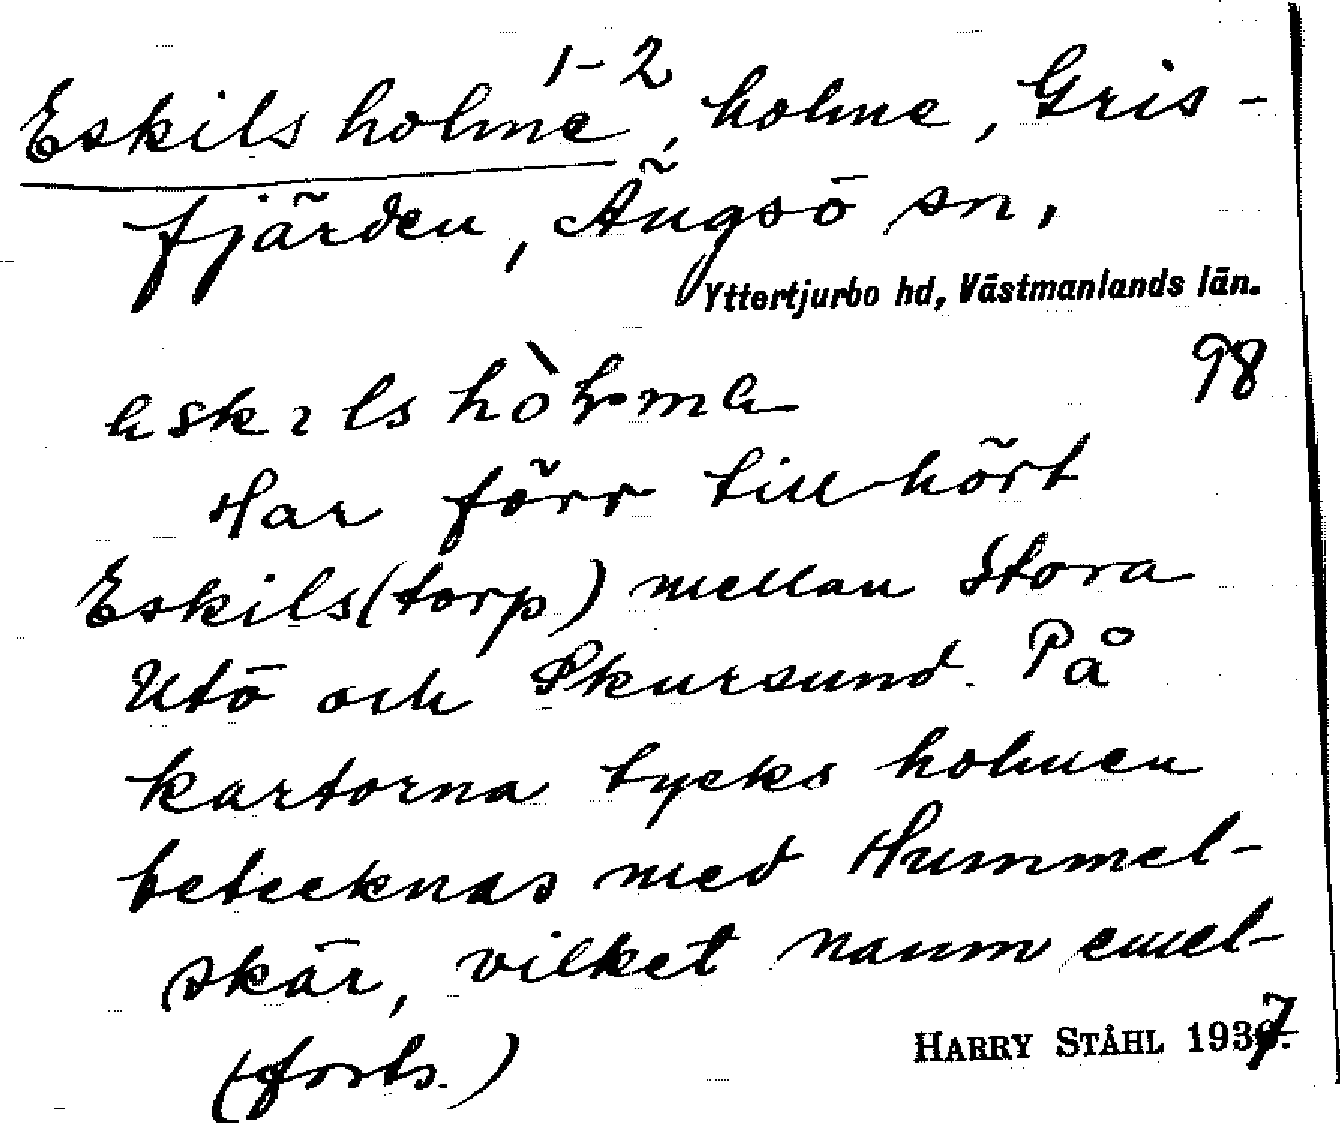 1-2
Eskilsholme, holme, Gris-
fjärden, Ängsö sn,
Yttertjurbo hd, Västmanlands län.
98
Har förr tillhört
Eskils(torp) mellan Stora
Utö och Skursund. På
kartorna tycks holmen
betecknas med Hummel-
skär, vilket namn emel-
(forts.)
HARRY STÅHL 1937.